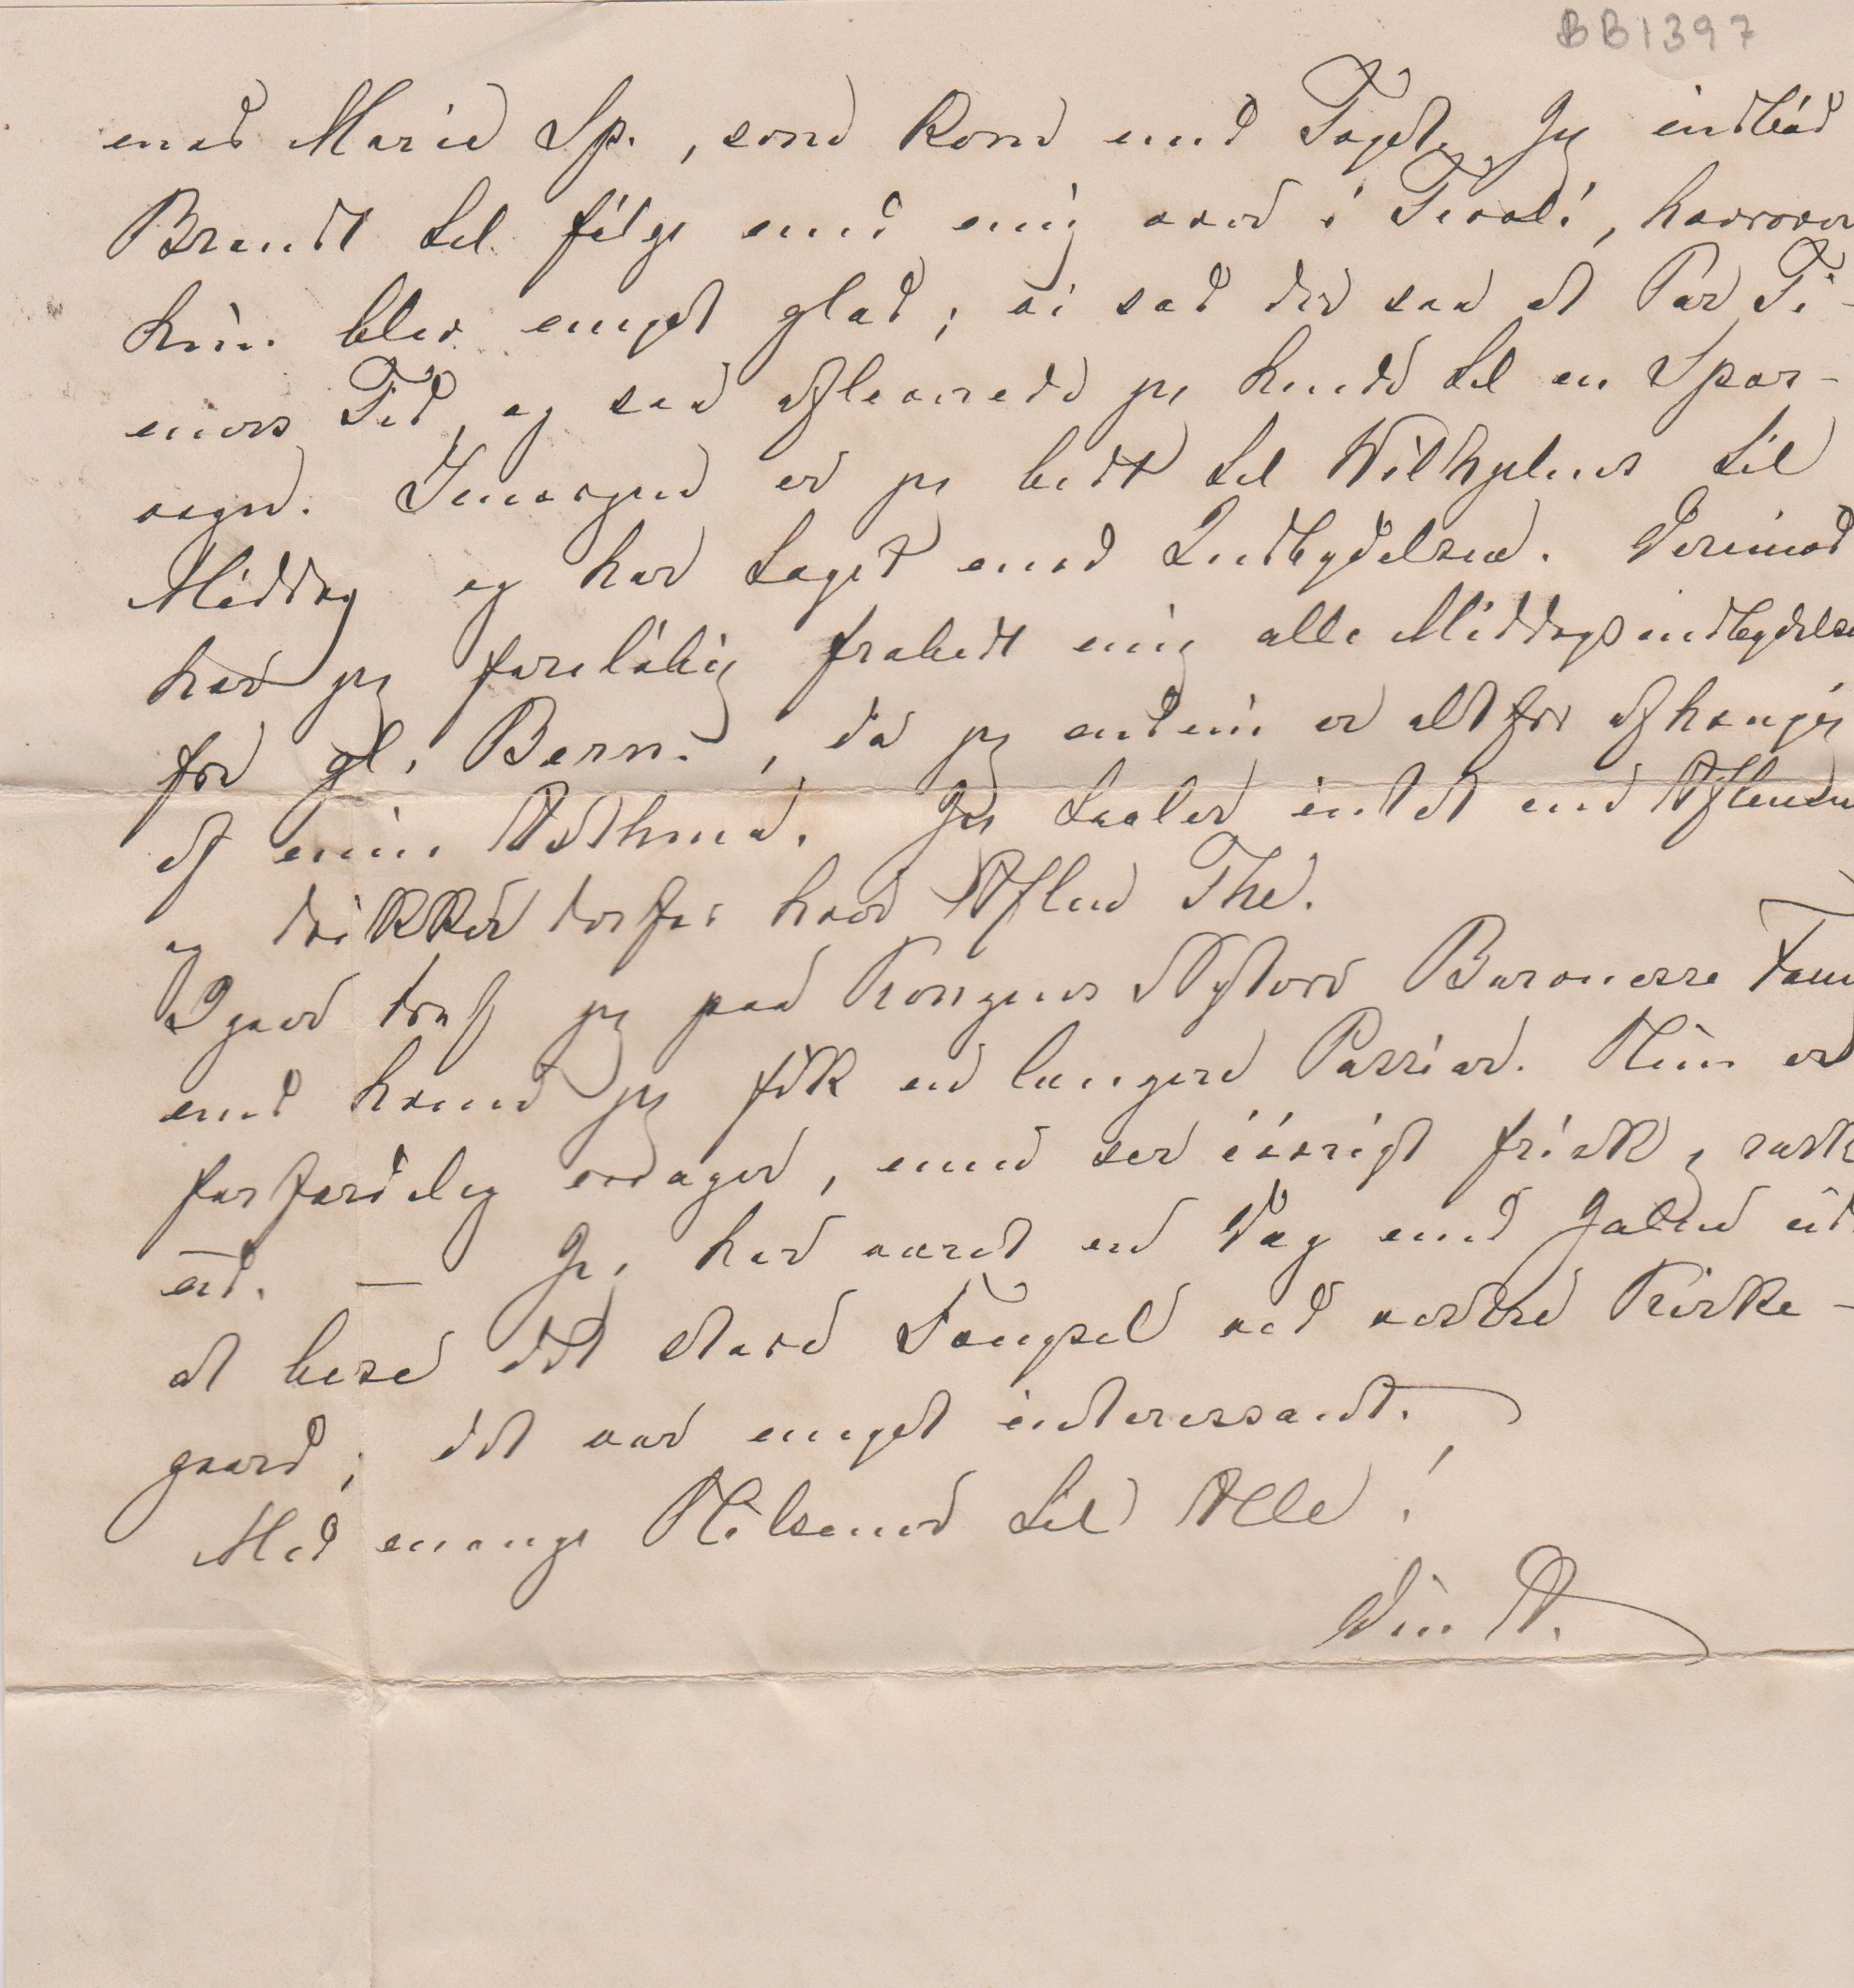 BB1397
mod Marie Sp., som kom med Toget. Jeg indbød
Brandt til følge med mig over i Tivoli, hvorover
hun blev meget glad; vi sad der saa et Par Ti-
mers Tid, og saa afleverede jeg hende til en Spor-
vogn. Imorgen er jeg bedt til Wilhjelms til
Middag og har taget mod Indbydelsen. Derimod
har jeg foreløbig frabedt mig alle Middagsindbydelse
fra gl. Bern., da jeg endnu er altfor afhængig
af min Asthma. Jeg taaler intet om Aftenen
og drikker derfor hver Aften The.
Igaar traf jeg paa Kongens Nytorv Baronesse
med hvem jeg fik en længere Passiar. Hun er
forfærdelig mager, men ser iøvrigt frisk og rask
ud. — Jeg har været en Dag med Galen ud
at bese det store Fængsel ved vestre Kirke-
gaard; det var meget interessant.
Med mange Hilsener til Alle!
Din A.